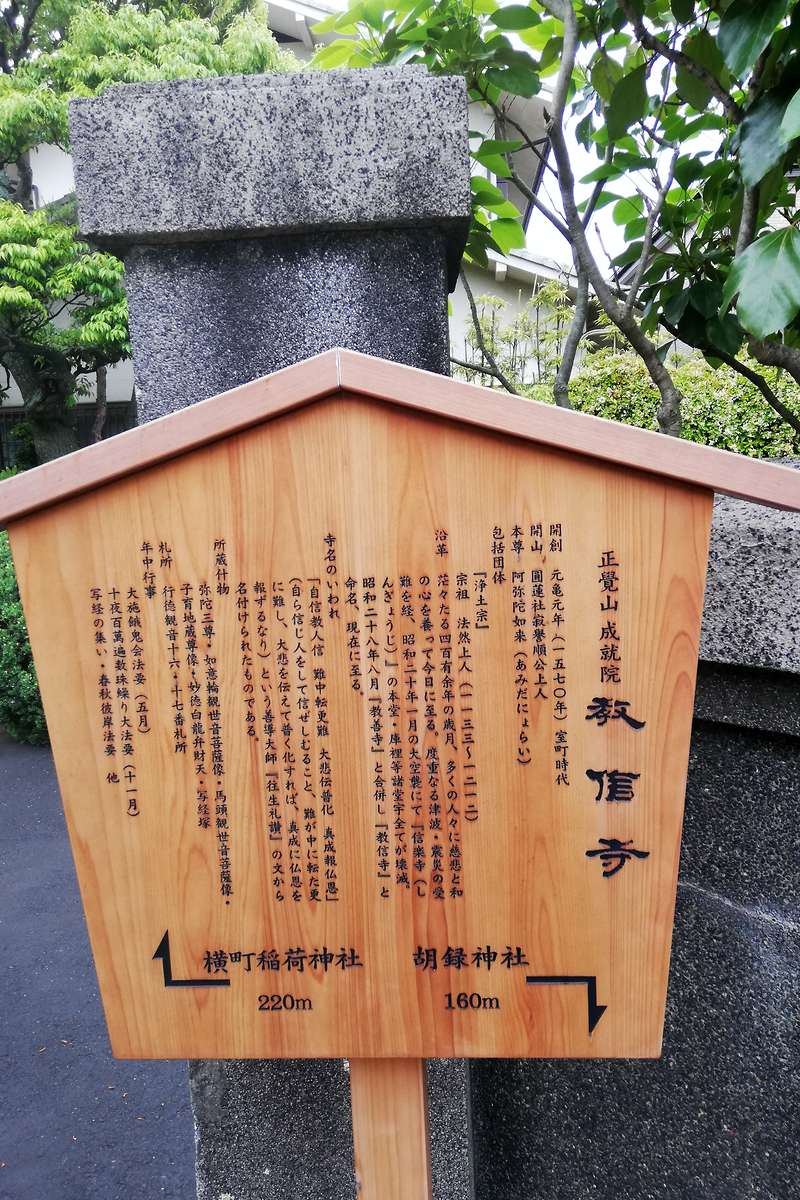 正覺山 成就院 教信寺
開創 元亀元年(一五七〇年)室町時代
開山 圓蓮社寂誉順公上人
本尊 阿弥陀如来(あみだにょらい)
包括団体
『浄土宗』
宗祖 法然上人(一一三三〜一二一二)
沿革 茫々たる四百有余年の歳月、多くの人々に慈悲と和
の心を養って今日に至る。度重なる津波・震災の受
難を経、昭和二十年一月の大空襲にて『信楽寺(し
んぎょうじ)』の本堂・庫裡等諸堂宇全てが壊滅。
昭和二十八年八月『教善寺』と合併し『教信寺』と
命名、現在に至る。
寺名のいわれ
「自信教人信 難中転更難 大悲伝普化 真成報仏恩」
(自ら信じ人をして信ぜしむること、難が中に転た更
に難し、大悲を伝えて普く化すれば、真成に仏恩を
報ずるなり)という善導大師『往生礼讃』の文から
名付けられたものである。
所蔵什物
弥陀三尊・如意輪観世音菩薩像・馬頭観世音菩薩像・
子育地蔵尊像・妙徳白龍弁財天・写経塚
札所 行徳観音十六・十七番札所
年中行事
大施餓鬼会法要(五月)
十夜百萬遍数珠繰り大法要(十一月)
写経の集い・春秋彼岸法要 他
横町稲荷神社 胡録神社
220m 160m